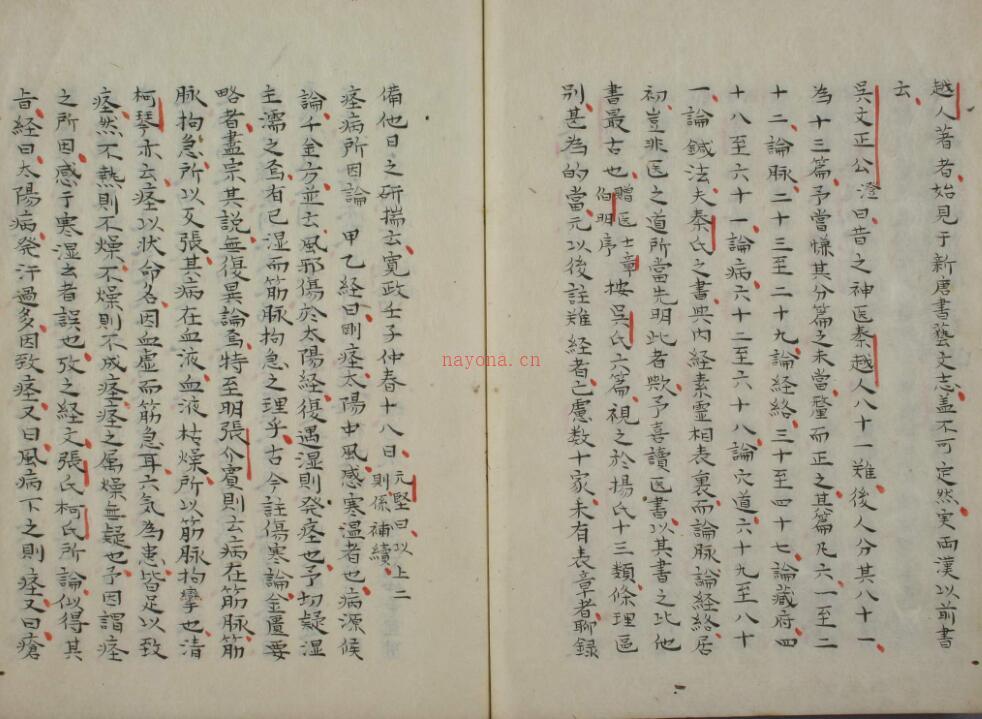 越人著者始見于新唐書藝文志蓋不可定然実両漢以前書
去
呉文正公澄曰昔之神医秦越人八十一難後人分其八十一
為十三篇予嘗慊其分篇之未當釐而正之其篇凡六一至二
十二論脉二十三至二十九論経絡三十至四十七論藏府四
十八至六十一論病六十二至六十八論穴道六十九至八十
一論鍼法夫秦氏之書与内経素霊相表裏而論脉論経絡居
初豈非医之道所當先明此者欤予喜讀医書以其書之比他
書最古也贈医士章伯明序按呉氏六篇視之於揚氏十三類條理區
別甚為的當元以後註難経者亡慮数十家未有表章者聊録
備他日之研揣去寛政壬子仲春十八日元堅曰以上二則係補續
痙病所因論 甲乙経曰剛痙太陽中風感寒温者也病源候
論千金方並去風邪傷於太陽経復遇湿則発痙也予切疑湿
主濡之焉有已湿而筋脉拘急之理乎古今註傷寒論金匱要
略者盡宗其説無復異論焉特至明張介賓則去病在筋脉筋
脉拘急所以反張其病在血液血液枯燥所以筋脉拘攣也清
柯琴亦去痙以状命名因血虚而筋急耳六気為患皆足以致
痙然不熱則不燥不燥則不成痙痙之属燥無疑也予因謂痙
之所因感于寒湿去者誤也攷之経文張氏柯氏所論似得其
旨経曰太陽病発汗過多因致痙又曰風病下之則痙又曰瘡
nayona.cn